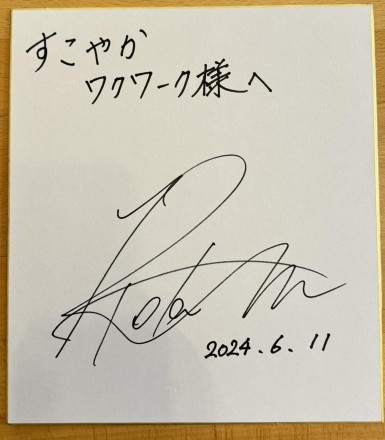 すこやか
ワクワーク様へ
2024.6.11